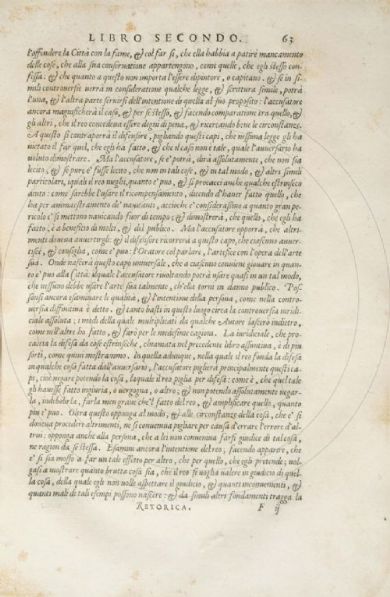 LIBRO SECONDO. 63
l'offendere la Città con la fame, & col far sì, che ella habbia a patire mancamento
delle cose, che alla sua conseruatione appartengono, come quelle, che egli stesso con-
fessa: & che quanto a questo non importa l'essere dipintore, o capitano. & se in si-
mili controuersie uerrà in consideratione qualche legge, & scrittura simile, potrà
l'una, & l'altra parte seruirsi dell'intentione di quella al suo proposito: l'accusatore
ancora magnificherà il caso, & per se stesso, & facendo comparatione tra quello, &
gli altri, che il reo concedesse essere degni di pena, & ricercando bene le circonstanze.
A questo si contraporrà il difensore, pigliando questi capi, che nissuna legge gli ha
uietato il far quel, che egli ha fatto, & che il caso non è tale, quale l'auuersario ha
uoluto dimostrare. Ma l'accusatore, se e' potrà, dirà assolutamente, che non sia
lecito, & se pure e' fusse lecito, che non in tal caso, & in tal modo, & altri simili
particolari, i quali il reo neghi, quanto e' può, & si procacci anche qualche estrinseco
aiuto: come sarebbe l'usare il ricompensamento, dicendo d'hauer fatto quello, che
ha per ammaestramento de' nauiganti, accioche e' considerassino a quanto gran pe-
ricolo e' si mettono nauicando fuor di tempo; & dimostrerà, che quello, che egli ha
fatto, è a beneficio di molti, & del publico. Ma l'accusatore opporrà, che altri-
menti doueua auuertirgli: & il difensore ricorrerà a questo capo, che ciascuno auuer-
tisce, & consiglia, come e' può: l'Oratore col parlare, l'artefice con l'opera dell'arte
sua. Onde nascerà questo capo uniuersale, che a ciascuno conuiene giouare in quan-
to e' può alla Città: il quale l'accusatore riuoltando potrà usare quasi in un tal modo,
che nessuno debbe usare l'arte sua talmente, ch'ella torni in danno publico. Pos-
sonsi ancora esaminare le qualità, & l'intentione della persona, come nella contro-
uersia diffinitiua è detto. & tanto basti in questo luogo circa la controuersia iuridi-
ciale assoluta; i modi della quale multiplicati da qualche Autore lascero indietro,
come nell'altre ho fatto, & farò per la medesima cagione. La iuridiciale, che pro-
caccia la difesa da cose estrinseche, chiamata nel precedente libro assuntiua, è di piu
sorti, come quiui mostrammo. In quella adunque, nella quale il reo fonda la difesa
in qualche cosa fatta dall'auuersario, l'accusatore piglierà principalmente questi ca-
pi, cioè negare potendo la cosa, la quale il reo piglia per difesa: come è, che quel tale
gli hauesse fatto ingiuria, o uergogna, o altro; & non potendo assolutamente negar-
la, indebolirla, farla men graue che 'l fatto del reo, & amplificare quello, quanto
piu e' può. Oltra questo opponga al modo, & alle circonstanze della cosa, che e' si
doueua procedere altrimenti, ne si conueniua pigliare per causa d'errare l'errore d'al-
trui: opponga anche alla persona, che a lei non conueniua farsi giudice di tal cosa,
ne ragion da se stessa. Esamini ancora l'intentione del reo, facendo apparire, che
e' si sia mosso a far un tal effetto per altro, che per quello, che egli pretende; uol-
gasi a mostrare quanto brutta cosa sia, che il reo si uoglia ualere in giudicio di quel-
la cosa, della quale egli non uolle aspettare il giudicio, & quanti inconuenienti, &
quanti mali da tali esempi possono nascere: & da simili altri fondamenti tragga la
RETORICA. F ij